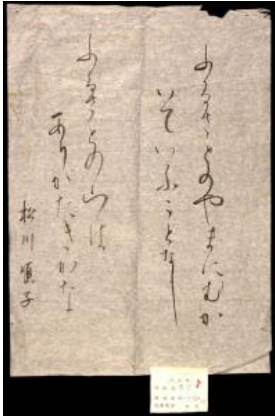 ふるさとのやまにむか
いていふことなし
ふるさとの山は
ありかたきかな
松川